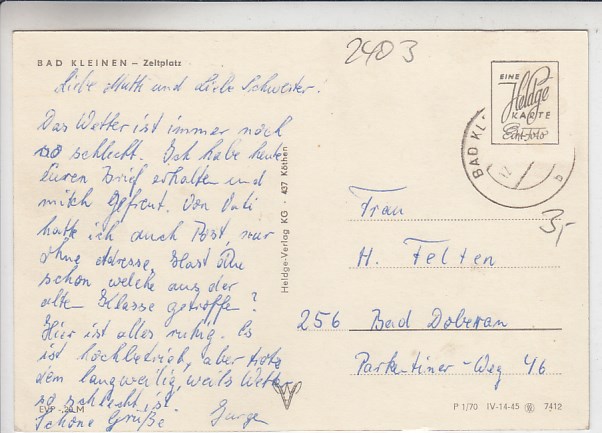 2403
BAD KLEINEN – Zeltplatz
Liebe Mutti und Liebe Schwester!
Das Wetter ist immer noch
so schlecht. Ich habe heute
Euren Brief erhalten und
mich gefreut. Von Vati
hatte ich auch Post, nur
ohne Adresse. Hast Du
schon welche aus der
alten Klasse getroffe?
Hier ist alles ruhig. Es
ist Hochbetrieb, aber trotz
dem langweilig, weils Wetter
so schlecht ist.
Schöne Grüße
EVP -,20 M
Heldge-Verlag KG · 437 Köthen
EINE
Heldge
KARTE
Echt Foto
BAD KL
b
3,-
Frau
H. Felten
256 Bad Doberan
Parkentiner-Weg 46
P 1/70 IV-14-45 7412